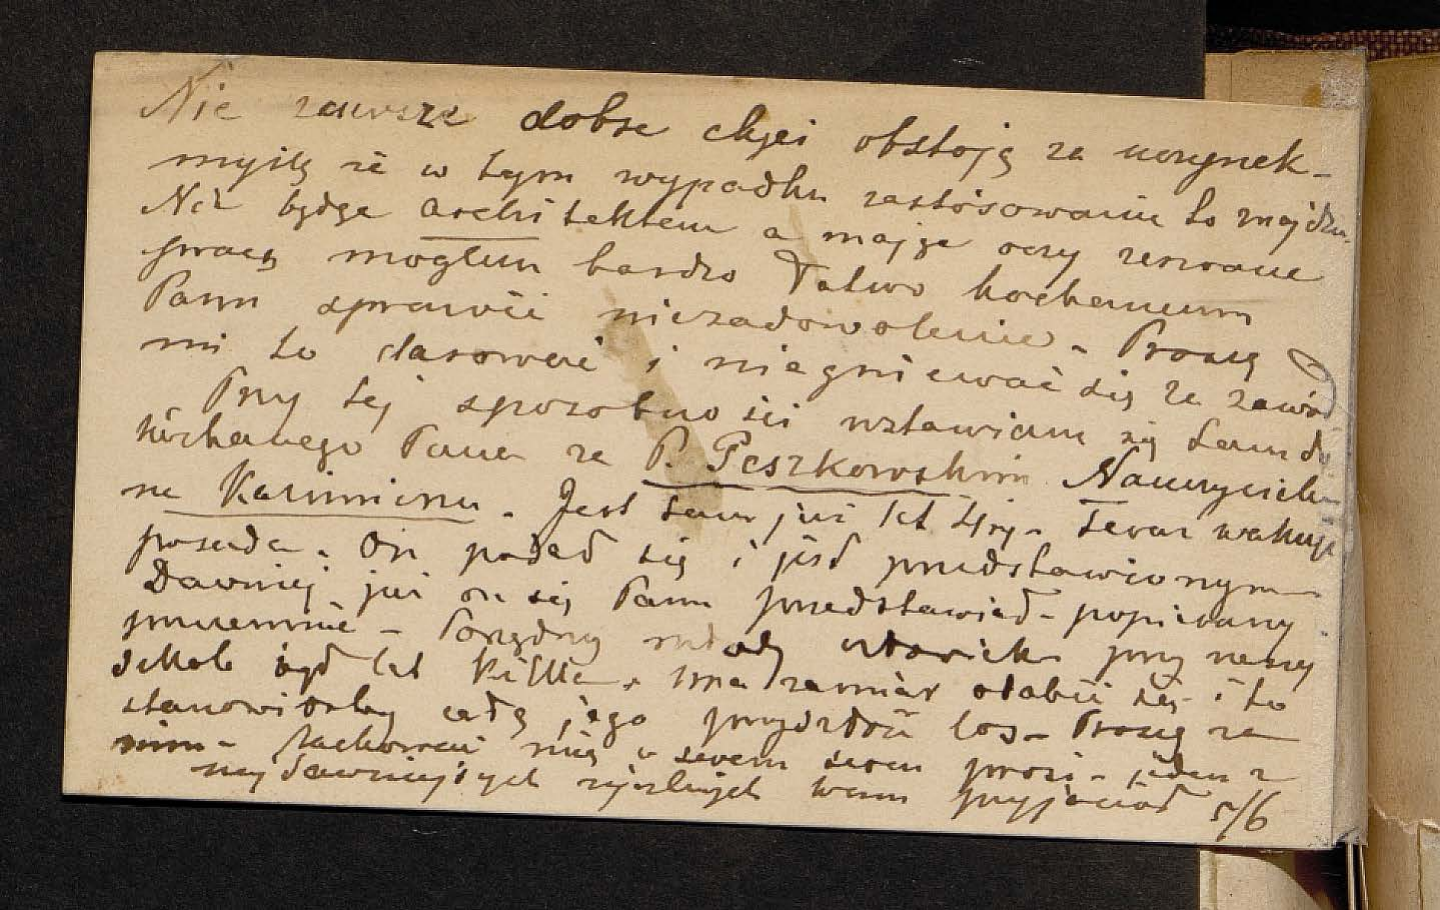 Nie zawsze dobre chęci obstoją za uczynek -
myślę że w tym wypadku zastósowanie to znajdzie.
Nie będąc architektem a mając oczy zerwane
pracą mogłem bardzo łatwo kochanemu
Panu sprawić niezadowolenie - Proszę
mi to darować i niegniewać się za zawód
Przy tej sposobności wstawiam się tam do
kochanego Pana za P. Peszkowskim Nauczycielem
na Kazimierzu. Jest tam już lat 4ry - teraz wakuje
posada. On podał się i jest przedstawionym
Dawniej już on się Panu przedstawiał - popierany
przezemnie - Porządny młody człowiek przy naszej
szkole był lat kilka, ma zamiar ożenić się i to
stanowiłoby całą jego przyszłość los - Proszę za
nim - Zachować mię w swem sercu prosi - jeden z
najdawniejszych Wam przyjaciół 5/6